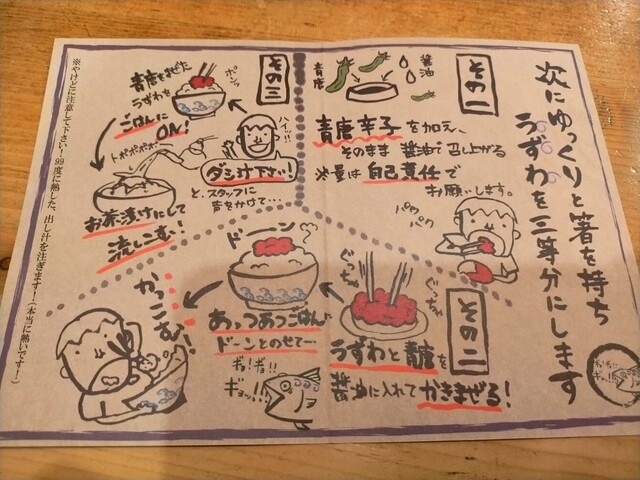 次にゆっくりと箸を持ち
うずわを三等分にします
その一
青唐
醤油
青唐辛子を加え、
そのまま醤油で召し上がる
※量は自己責任で
お願いします。
パクパク
その二
ぐっちゃ
ぐっちゃ
うずわと青唐を
醤油に入れてかきまぜる!
ドーン
あっつあつごはんに
ドーンとのせて…
ギョ!ギョ!!
ギョッ!!
かっこむ!
その三
青唐をまぜた
うずわを
ごはんに
ON!
ポンッ
ハイッ!!
ダシ汁下さい!
と、スタッフに
声をかけて…
トポポポポ
お茶漬けにして
流しこむ!
※やけどに注意して下さい!99度に熱した、出し汁を注ぎます!(本当に熱いです!)